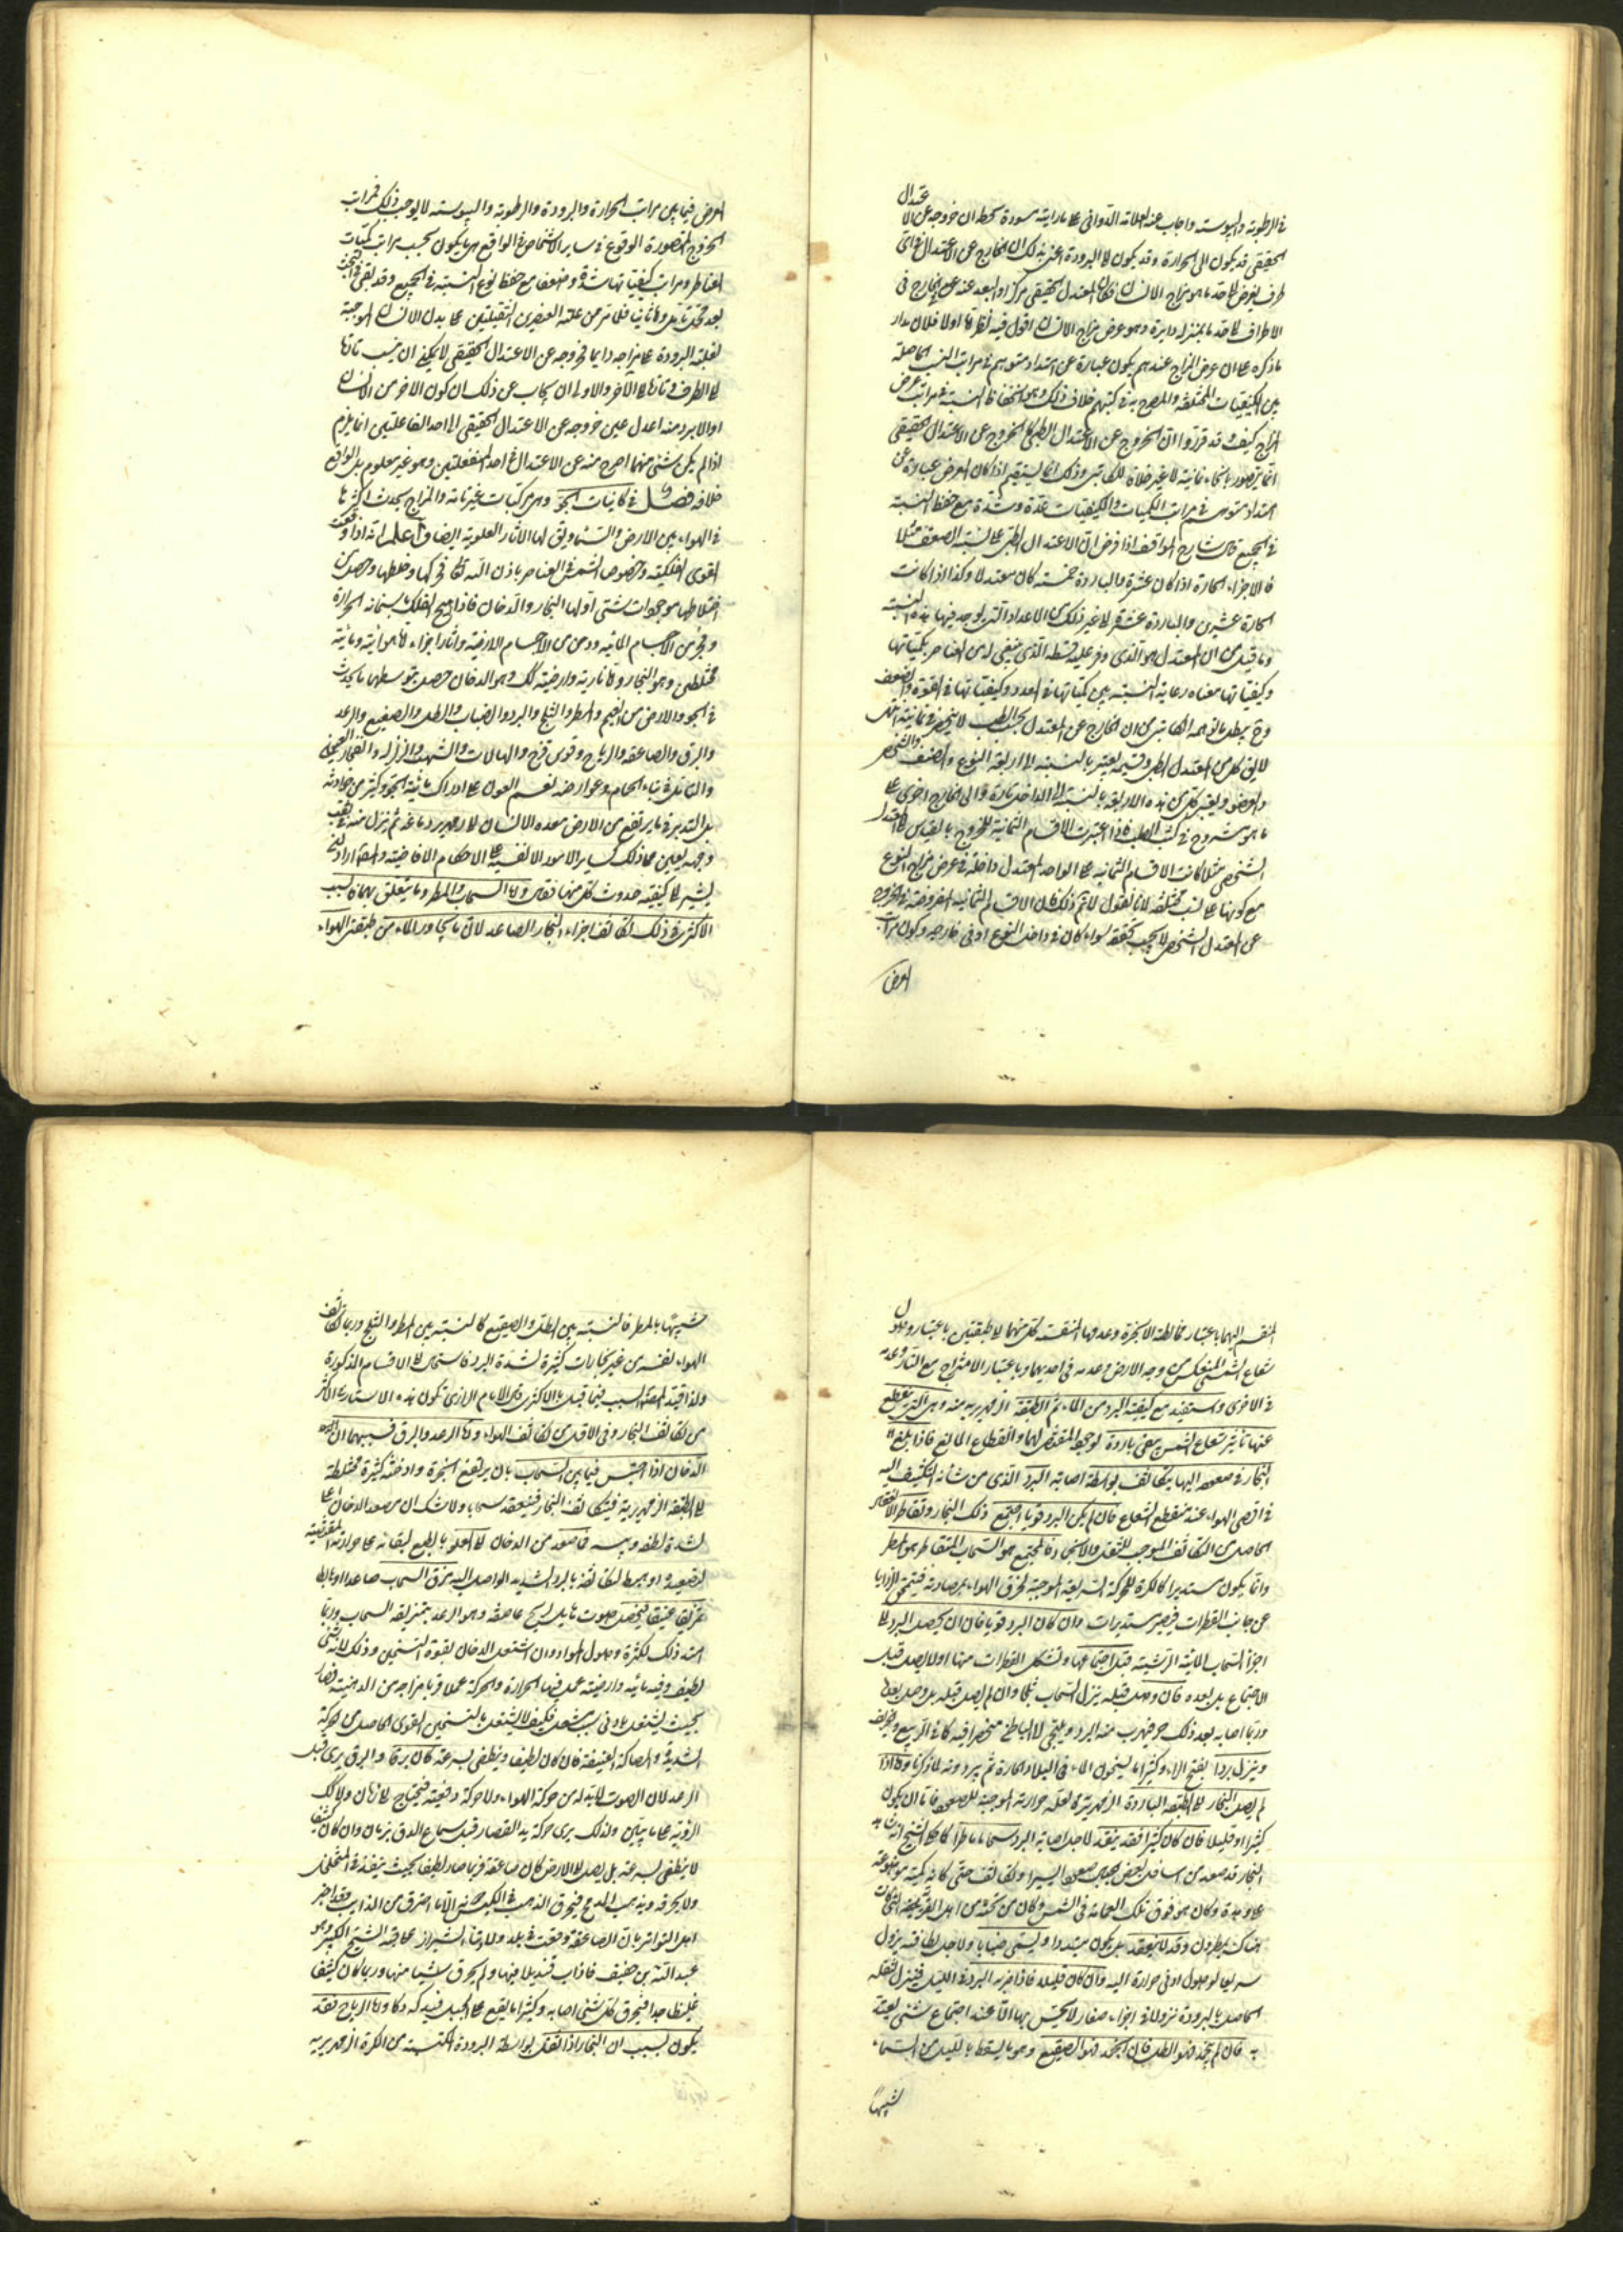 في الرطوبة واليبوسة واجاب عنه العلامة الدواني بما رايته مسودة بخطه ان خروجه عن الاعتدال
الحقيقي قد يكون الى الحرارة وقد يكون الى البرودة اعني بذلك ان الخارج عن الاعتدال في اي
طرف يفرض له حد ما هو مزاج الانسان فكان المعتدل الحقيقي مركز او البعد عنه عن الخارج في
الاطراف الى حد ما بمنزلة دايرة وهو عرض مزاج الانسان اقول فيه نظر اما اولا فلان مدار
ما ذكره على ان عرض المزاج عندهم يكون عبارة عن امتداد متوهم في مراتب النسب الحاصلة
بين الكيفيات المختلفة والمصرح به في كتبهم خلاف ذلك وهو انحفاظ النسبة في مراتب عرض
المزاج كيف وقد قرروا ان الخروج عن الاعتدال الطبي كالخروج عن الاعتدال الحقيقي
انما يتصور بانحاء ثمانية لا غير خلافا للكاتبي وذلك انما يستقيم اذا كان العرض عبارة عن
امتداد متوهم في مراتب الكميات والكيفيات عدة وشدة مع حفظ النسبة
في الجميع قال شارح المواقف اذا فرض ان الاعتدال الطبي على نسبة الضعف مثلا
فالاجزاء الحارة اذا كان عشرة والباردة خمسة كان معتدلا وكذا اذا كانت
الحارة عشرين والباردة عشرة الى غير ذلك من الاعداد التي يوجد فيها هذه النسبة
وما قيل من ان المعتدل هو الذي وفر عليه قسطه الذي ينبغي له من العناصر بكمياتها
وكيفياتها معناه رعاية النسبة بين كمياتها في العدد وكيفياتها في القوة والضعف
وح يبطل ما توهمه الكاتبي من ان الخارج عن المعتدل بحسب الطب لا ينحصر في ثمانية
لا يق كل من المعتدل الطبي وقسيمه يعتبر بالنسبة الى اربعة النوع والصنف والشخص
والعضو ويعتبر كل من هذه الاربعة بالنسبة الى الداخل تارة والى الخارج اخرى على
ما هو مشروح في كتب الطب فاذا اعتبرت الاقسام الثمانية للخروج بالقياس الى المعتدل
الشخصي مثلا كانت الاقسام الثمانية على الواحد المعتدل داخلة في عرض مزاج النوع
مع كونها على نسب مختلفة لانا نقول لا تم ذلك فان الاقسام الثمانية المفروضة في الخروج
عن المعتدل الشخصي لا يجب تحققه سواء كان في داخل النوع او في خارجه وكون مراتب
العرض
العرض فيما بين مراتب الحرارة والبرودة والرطوبة واليبوسة لا يوجب ذلك في مراتب
الخروج المتصورة الوقوع في ساير الاشخاص في الواقع بل يكون بحسب مراتب كميات
العناصر ومراتب كيفياتها شدة وضعفا مع حفظ نوع النسبة في الجميع وقد بقي
بعد محل تامل واما ثانيا فلما مر من غلبة العنصرين الثقيلين على بدن الانسان الموجبة
لغلبة البرودة على مزاجه دايما فخروجه عن الاعتدال الحقيقي لا يمكن ان ينسب تارة
الى الطرف وتارة الى الآخر والاولى ان يجاب عن ذلك ان كون الاخر من الانسان
او الابرد منه اعدل عين خروجه عن الاعتدال الحقيقي الى احد الفاعلتين انما يلزم
اذا لم يكن شئ منهما اخرج منه عن الاعتدال في احد المنفعلتين وهو غير معلوم بل الواقع
خلافه فصل في كائنات الجو وهي مركبات غير تامة والمزاج يحدث اكثرها
في الهواء بين الارض والسماء ويق لها الآثار العلوية ايضا واعلم انه اذا وقعت
القوى الفلكية وخصوصا الشمس في العناصر باذن الله تعالى فحركتها وخلطها وحصل من
اختلاطها موجودات شتى اولها البخار والدخان فاذا هيج الفلك باسخانه الحرارة
وبخر من الاجسام المائية ودخن من الاجسام الارضية واثار اجزاء اما هوائية ومائية
مختلطين وهو البخار واما نارية وارضية كك وهو الدخان حصل بتوسطهما ما يحدث
في الجو والارض من الغيم والمطر والثلج والبرد والضباب والطل والصقيع والرعد
والبرق والصاعقة والرياح وقوس قزح والهالات والشهب والزلزلة وانفجار العيون
والتامل في بناء الحمام وعوارضه نعم العون على ادراك ماهية الجو وكثير من حوادثه
بل التدبر فيما يرتفع من الارض معدة الانسان الى زمهرير دماغه ثم نزل منه في ثقب
وجهه يعين على ذلك كساير الامور الانفسية على الاحكام الآفاقية والمصنف اراد ان
يشير الى كيفية حدوث كل منها فقال واما السحاب والمطر وما يتعلق بهما فالسبب
الاكثري في ذلك تكاثف اجزاء البخار الصاعد لان ما يجاور الماء من طبقتي الهواء
المنقسم اليهما باعتبار مخالطة الابخرة وعدمها المنقسمة كل منهما الى طبقتين باعتبار وصول
شعاع الشمس المنعكس من وجه الارض وعدمه في احديهما وباعتبار الامتزاج مع النار وعدمه
في الاخرى ويستفيد مع كيفية البرد من الماء ثم الطبقة الزمهريرية منه وهي التي ينقطع
عنها تاثير شعاع الشمس يبقى باردة لوجود المقتضى لهما وانقطاع المانع فاذا بلغ
البخار في صعوده اليها يتكاثف بواسطة اصابة البرد الذي من شانه التكثيف اليه
في اقصى الهواء عند منقطع الشعاع فان لم يكن البرد قويا اجتمع ذلك البخار وتقاطر
الحاصل من التكاثف الموجب للثقل والانجماد فالمجتمع هو السحاب المتقاطر هو المطر
وانما يكون مستديرا كالكرة للحركة السريعة الموجبة لخرق الهواء بمصادمته فتنمحي الزوايا
عن جانب القطرات فيصير مستديرات وان كان البرد قويا فان ان يحصل البرد الى
اجزاء السحاب المائية الرشية قبل اجتماعها وتشكل القطرات منها اولا يصل قبل
الاجتماع بل بعده فان وصل قبله ينزل السحاب ثلجا وان لم يصل قبله بل وصل بعده
وربما اصابه بعد ذلك حر فيهرب منه البرد ويلتجي الى الباطن منحصرا فيه كما في الربيع والخريف
وينزل بردا بفتح الراء وكثيرا ما يسخنون الماء في البلاد الحارة ثم يبردونه لما ذكرنا واما اذا
لم يصل البخار الى الطبقة الباردة الزمهريرية لقلة حرارته الموجبة للصعود فاما ان يكون
كثيرا او قليلا فان كان كثيرا فقد ينعقد لاجل اصابة البرد سحابا ماطرا كما حكى الشيخ انه شاهد
البخار قد صعد من اسافل بعض الجبال صعودا يسيرا وتكاثف حتى كانه مكبة موضوعة
على وهدة وكان هو فوق تلك الغمامة في الشمس وكان من تحته من اهل القرية التي كانت
هناك يمطرون وقد لا ينعقد بل يكون مبتددا ويسمى ضبابا ولاجل لطافته يزول
سريعا لوصول ادنى حرارة اليه وان كان قليلا فاذا ضربه البرد في الليل فينزل لثقله
الحاصل بالبرودة نزولا في اجزاء صغار لا يحس بها الا عند اجتماع شئ يعتد
به فان لم يجمد فهو الطل فان انجمد فهو الصقيع وهو ما يسقط بالليل من السماء
شبيها
شبيها بالمطر فالنسبة بين الطل والصقيع كالنسبة بين المطر والثلج وربما تكاثف
الهواء نفسه من غير بخارات كثيرة لشدة البرد فاستحال الى الاقسام المذكورة
ولذا قيد المصنف السبب فيما قبل بالاكثري قال الامام الرازي تكون هذه الاشياء في الاكثر
من تكاثف البخار وفي الاقل من تكاثف الهواء واما الرعد والبرق فسببهما ان
الدخان اذا احتبس فيما بين السحاب بان يرتفع ابخرة وادخنة كثيرة مختلطة
الى الطبقة الزمهريرية فيتكاثف البخار فينعقد سحابا ولا شك ان صعد الدخان اعلى
لشدة لطفه ويبسه فما صعد من الدخان الى العلو بالطبع لبقائه على حرارته المقتضية
لصعوده او هبط لتكاثفه بالبرد الشديد الواصل اليه مزق السحاب صاعدا او هابطا
تمزيقا عنيفا فيحصل صوت هايل كريح عاصفة وهو الرعد بتمزيقه السحاب وربما
امتد ذلك لكثرة وصول المواد وان اشتعل الدخان بقوة التسخين وذلك لانه شئ
لطيف وفيه مائية وارضية عمل فيها الحرارة والحركة عملا قريبا مزاجه من الدهنية فصار
بحيث يشتعل بادنى سبب مشعل فكيف لا يشتعل بالتسخين القوى الحاصل من الحركة
الشديدة والمصاكة العنيفة فان كان لطيفا وينطفى بسرعة كان برقا والبرق يرى قبل
الرعد لان الصوت لابد له من حركة الهواء ولا حركة دفعية فيحتاج الى زمان ولا كك
الرؤية على ما يبين ولذلك يرى حركة يد القصار قبل سماع الدق بزمان وان كان كثيفا
لا ينطفى بسرعة بل يصل الى الارض كان صاعقة فربما صار لطيفا بحيث ينفذ في المتخلخل
ولا يحرقه ويذيب المدمج فيحرق الذهب في الكيس الا ما احترق من الذائب وقد اخبر
اهل التواتر بان الصاعقة وقعت في بلدة شيراز على قبة الشيخ الكبير ابو
عبد الله بن خفيف فاذاب قنديلا فيها ولم يحرق شيئا منها وربما كان كثيفا
غليظا جدا فيحرق كل شئ اصابه وكثيرا ما يقع على الجبل فيدكه دكا واما الرياح فقد
يكون بسبب ان البخار اذا ثقل بواسطة البرودة المكتسبة من الكرة الزمهريرية